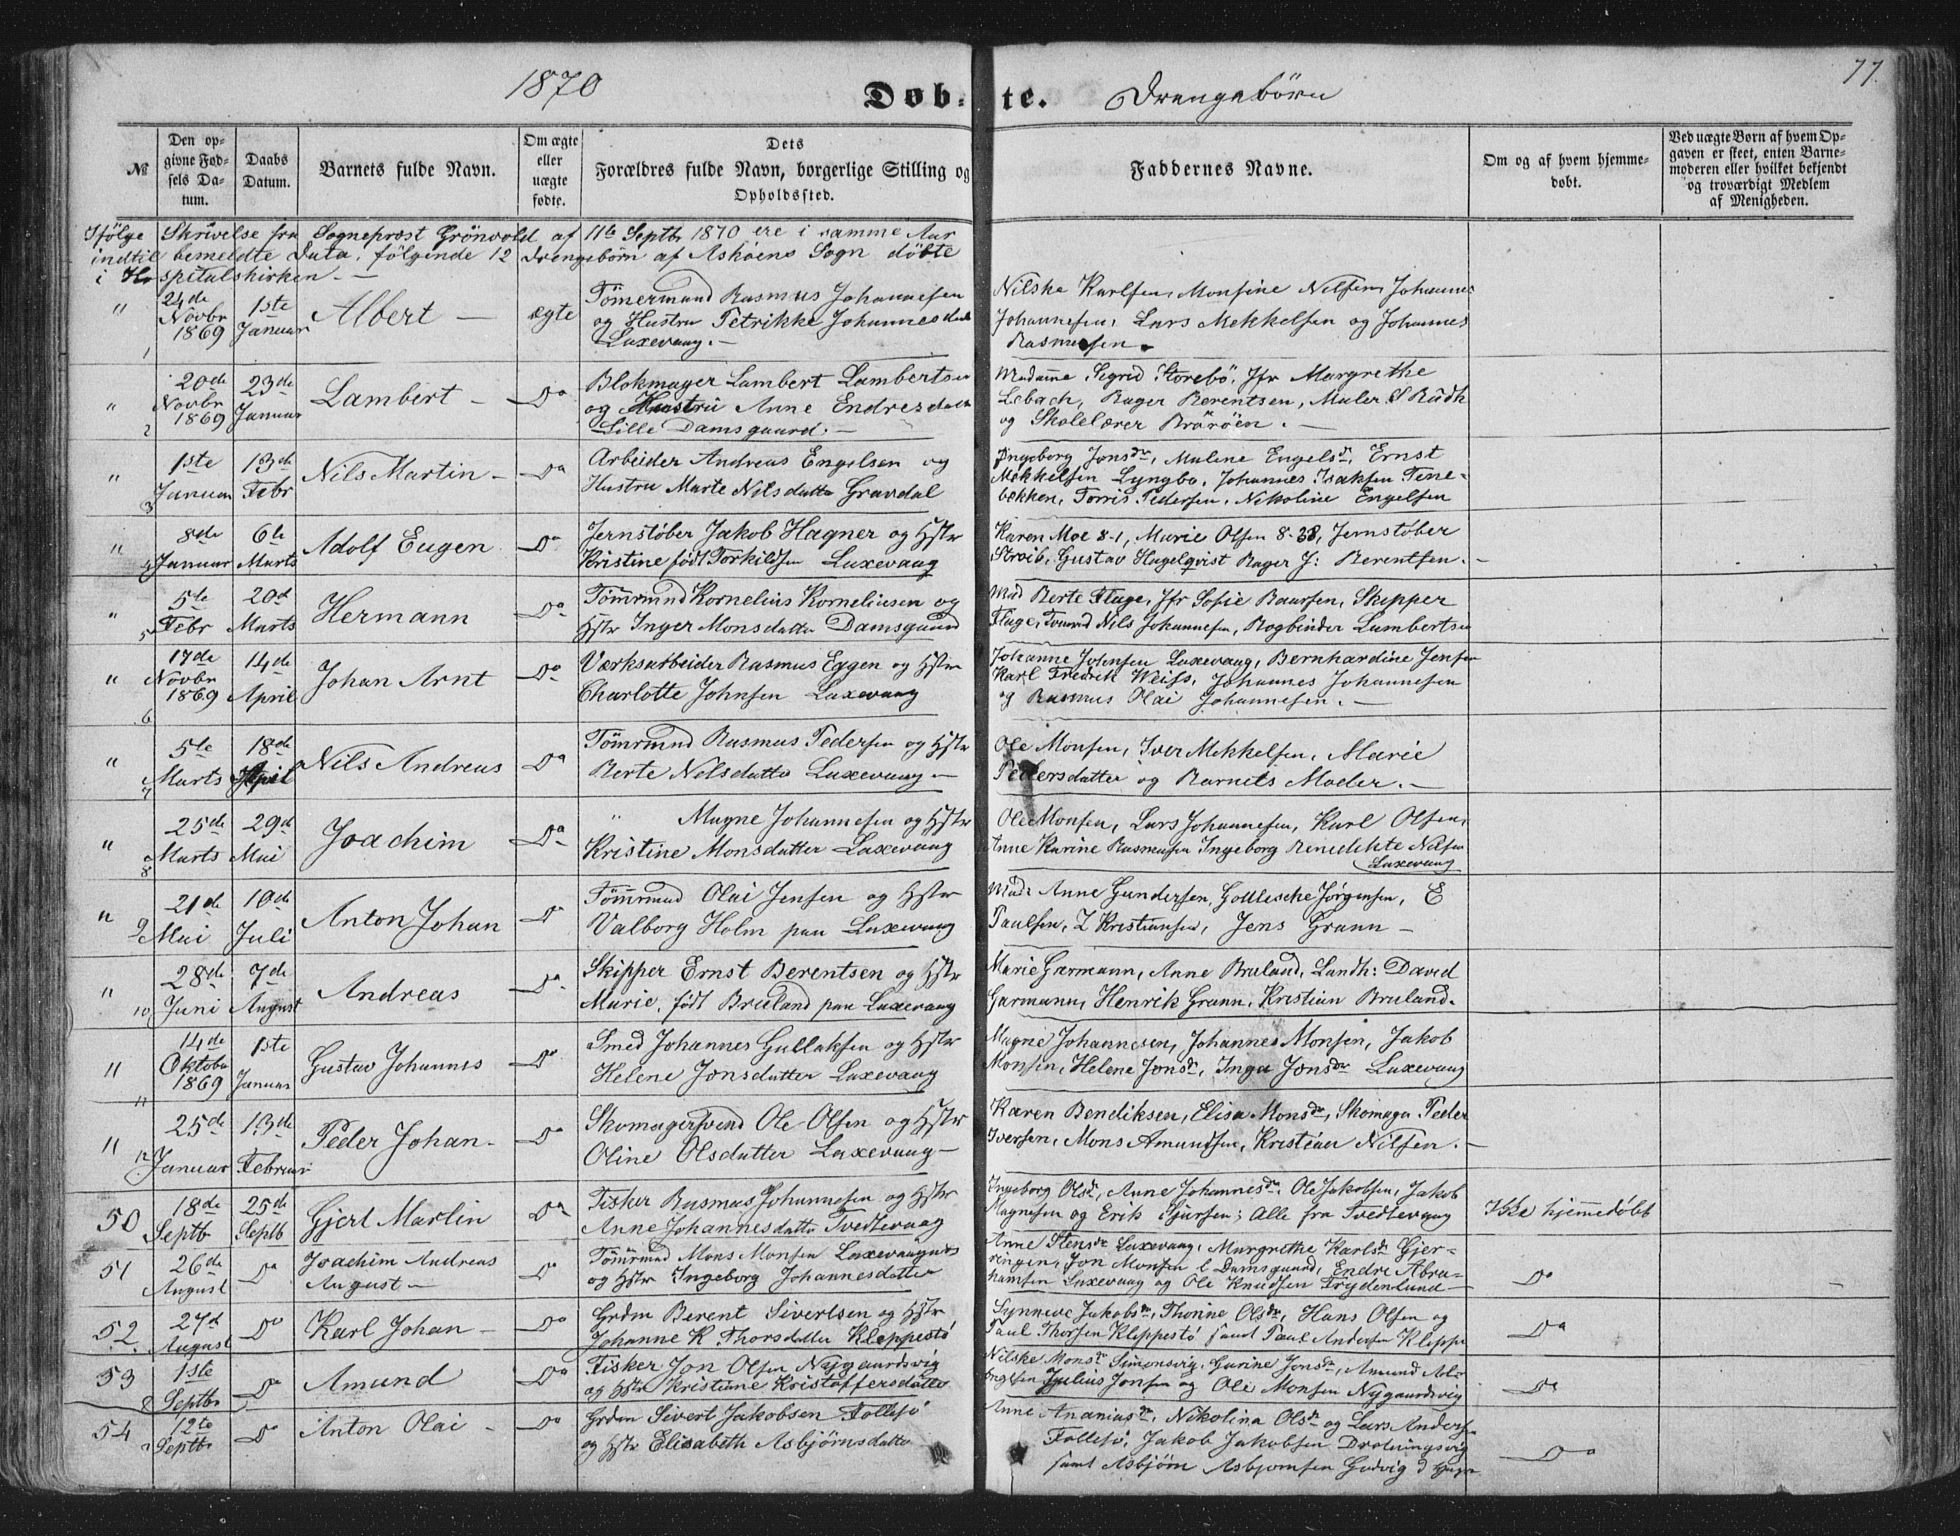 1870 Døb- te. Drengebörn 77.
№ Den opgivne Fødsels Datum. Daabs Datum. Barnets fulde Navn. Om ægte eller uægte fødte. Dets Forældres fulde Navn, borgerlige Stilling og Opholdssted. Faddernes Navne. Om og af hvem hjemmedøbt. Ved uægte Børn af hvem Opgaven er skeet, enten Barnemoderen eller hvilket bekjendt og troværdigt Medlem af Menigheden.
Ifölge Skrivelse fra Sogneprost Grönvold af 11te Septbr 1870 ere i samme Aar
indtil bemeldte Data, fölgende 12 Drengebörn af Askøens Sogn döbte
i Hospitalskirken. —
" 1 24de Novbr 1869 1ste Januar Albert — ægte Tömermand Rasmus Johannesen
og Hustru Petrikke Johannesdatt
Laxevaag. —
Nilske Karlsen, Monsine Nilsen, Johannes
Johannesen, Lars Mekkelsen og Johannes
Rasmussen —
" 2 20de Novbr 1869 23de Januar Lambert — Do Blokmager Lambert Lambertsen
og Hustru Anne Endresdatt
Lille Damsgaard. —
Madame Sigrid Storebö, Jfr Margrethe
Lebach, Bager Berentsen, Maler S Büdh
og Skolelærer Bröröen. —
" 3 1ste Januar 13de Febr Nils Martin — Do Arbeider Andreas Engelsen og
Hustru Marte Nilsdatter Gravdal
Ingeborg Jonsdr, Malene Engelsdr, Ernst
Mekkelsen Lyngbø, Johannes Isaksen Tene-
bekken, Torris Pedersen, Nikoline Engelsen
" 4 8de Januar 6te Marts Adolf Eugen Do Jernstøber Jakob Hagner og Hstr
Kristine født Torkildsen Laxevaag
Karen Moe 8-1, Marie Olsen 8-38, Jernstøber
Stroib, Gustav Hagelqvist Bager J: Berentsen. —
" 5 5te Febr 20d Marts Hermann Do Tömrmnd Kornelius Korneliusen og
Hstr Inger Monsdatter Damsgaard
Mad Berte Fluge, Jfr Sofie Baarsen, Skipper
Fluge, Tømmd Nils Johannesen, Bogbinder Lambertsen
" 6 17de Novbr 1869 14de April Johan Arnt Do Værksarbeider Rasmus Eggen og Hstr
Charlotte Johnsen Laxevaag
Johanne Johnsen Laxevaag, Bernhardine Jensen
Karl Fredrik Weiss, Johannes Johannesen
og Rasmus Olai Johannesen. —
" 7 5te Marts 18de April Nils Andreas Do Tömrmnd Rasmus Pedersen og Hstr
Berte Nilsdatter Laxevaag —
Ole Monsen, Iver Mekkelsen, Marie
Pedersdatter og Barnets Moder. —
" 8 25de Marts 29d Mai Joachim Do " Magne Johannesen og Hstr
Kristine Monsdatter Laxevaag
Ole Monsen, Lars Johannesen, Karl Olsen,
Anne Karine Rasmusen Ingeborg Benedikte Nilsen
Laxevaag
" 9 21de Mai 10de Juli Anton Johan Do Tömrmnd Olai Jensen og Hstr
Valborg Holm paa Laxevaag
Mad: Anne Gundersen, Gottlische Jørgensen, E
Paulsen, Z Kristiansen, Jens Grann —
" 10 28de Juni 7de August Andreas Do Skipper Ernst Berentsen og Hstr
Marie, født Bruland paa Laxevaag
Marie Garmann, Anne Bruland, Landh: David
Garmann, Henrik Grann, Kristian Bruland.
" 11 14de Oktober 1869 1ste Januar Gustav Johannes Do Smed Johannes Gullaksen og Hstr
Helene Jonsdatter Laxevaag
Magne Johannesen, Johannes Monsen, Jakob
Monsen, Helene Jonsdr, Inga Jonsdr Laxevaag
" 12 25de Januar 13de Februar Peder Johan — Do Skomagersvend Ole Olsen og Hstr
Oline Olsdatter Laxevaag —
Karen Bendiksen, Elisa Monsdr, Skomager Peder
Iversen, Mons Amundsen, Kristian Nilsen. —
50 18de Septb 25de Septb Gjert Martin Do Fisker Rasmus Johannesen og Hstr
Anne Johannesdatter Tvedtevaag
Ingeborg Olsdr, Anne Johannesdr, Ole Jakobsen, Jakob
Magnesen og Erik Sjursen; Alle fra Tvedtevaag
Ikke hjemmedöbt
51 26de August Do Joachim Andreas
August — Do Tömrmnd Mons Monsen Laxevaagnes
og Hstr Ingeborg Johannesdatter
Anne Stensdr Laxevaag, Margrethe Karlsdr Gjer-
ringen, Jon Monsen l Damsgaard, Endre Abra-
hamsen Laxevaag og Ole Knudsen Frydenlund —
Do
52 27d August Do Karl Johan — Do Grdm Berent Sivertsen og Hstr
Johanne K Thorsdatter Kleppestö
Synneve Jakobsdr, Thorine Olsdr, Hans Olsen og
Paul Thorsen Kleppestö samt Paul Andersen Kleppe
Do
53 1ste Septbr Do Amund Do Fisker Jon Olsen Nygaardsvig
og Hstr Kristiane Kristoffersdatter
Nilske Monsdr Simonsvig, Gurine Jonsdr, Amund
Julius Jonsen og Ole Monsen Nygaardsvig
Do
54 12te Septbr Do Anton Olai — Do Grdm Sivert Jakobsen Follesö
og Hstr Elisabeth Asbjørnsdatter
Anne Ananiasdr, Nikolina Olsdr og Lars Andersen
Follesö, Jakob Jakobsen Drotningsvig
samt Asbjørn Asbjørnsen Godvig
Do